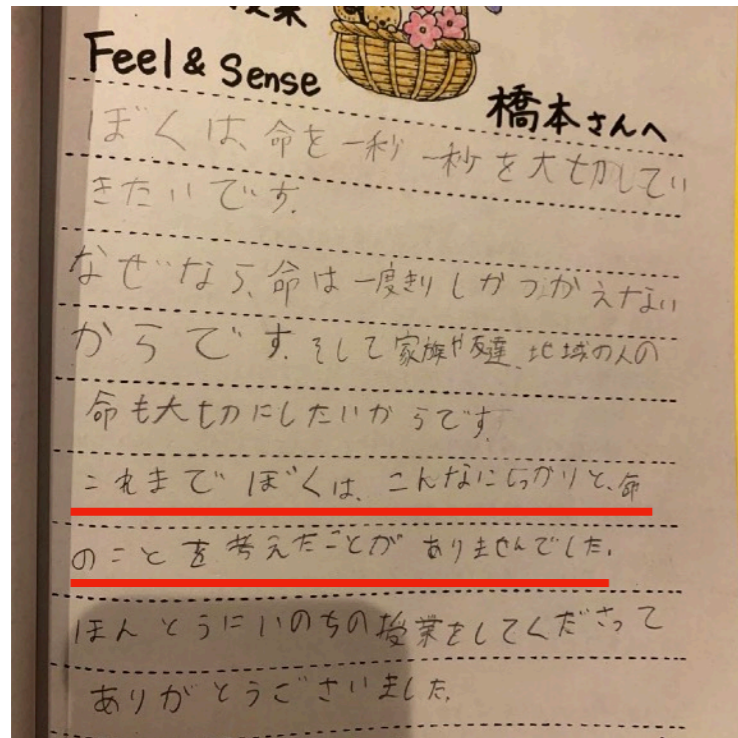 授業
Feel & Sense
橋本さんへ
ぼくは、命を一秒一秒を大切してい
きたいです。
なぜなら、命は一度きりしかつかえない
からです。そして家族や友達、地域の人の
命も大切にしたいからです。
これまでぼくは、こんなにしっかりと、命
のことを考えたことがありませんでした。
ほんとうにいのちの授業をしてくださって
ありがとうございました。